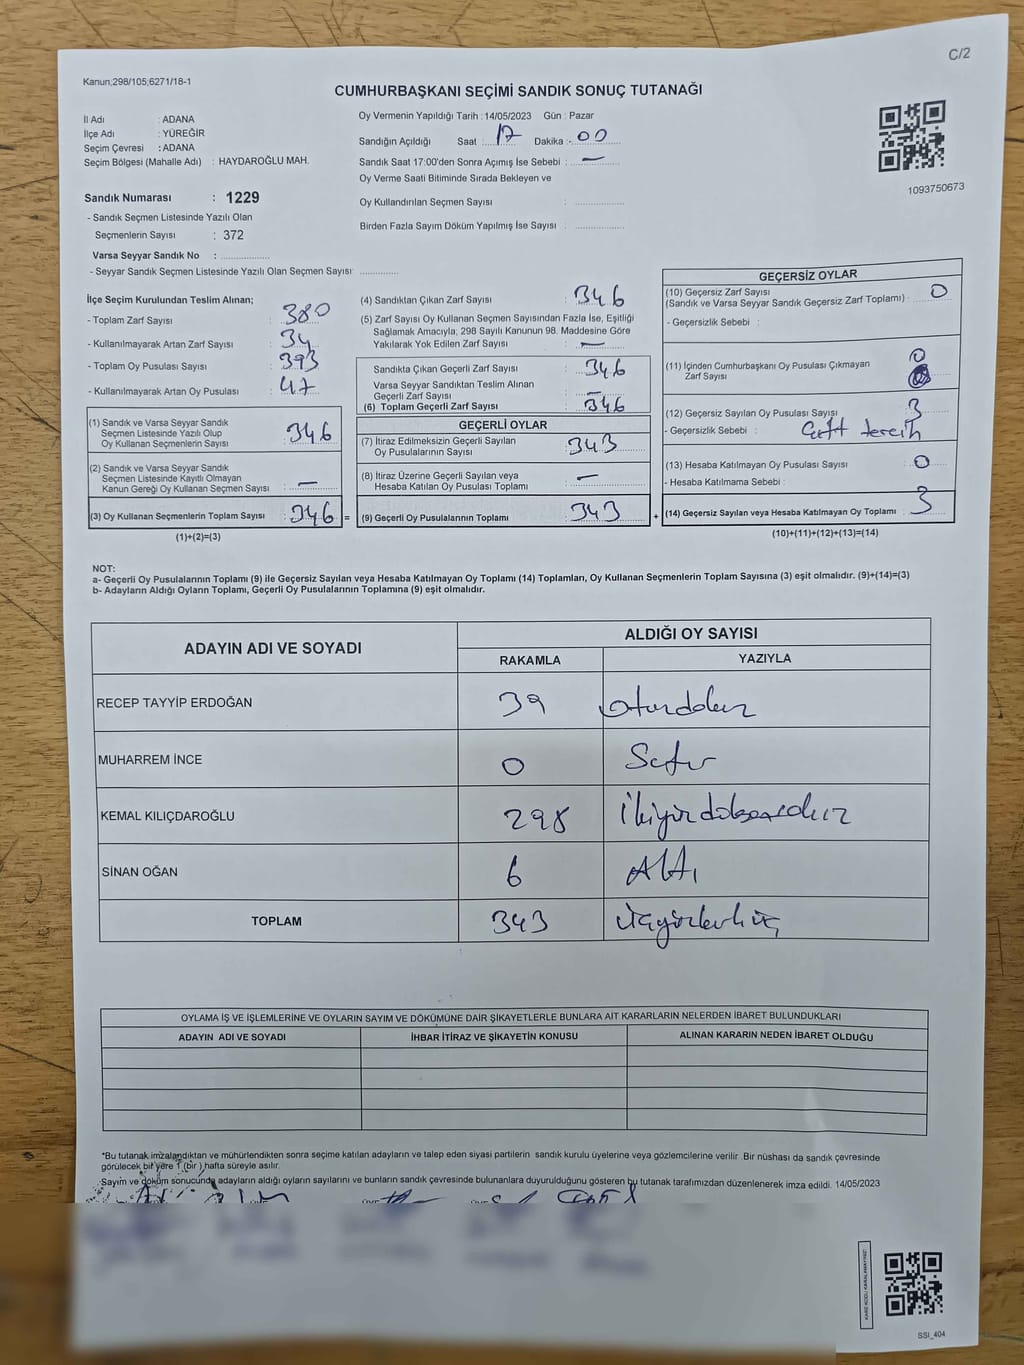 C/2
Kanun;298/105;6271/18-1
CUMHURBAŞKANI SEÇİMİ SANDIK SONUÇ TUTANAĞI
İl Adı : ADANA
İlçe Adı : YÜREĞİR
Seçim Çevresi : ADANA
Seçim Bölgesi (Mahalle Adı) : HAYDAROĞLU MAH.
Sandık Numarası : 1229
- Sandık Seçmen Listesinde Yazılı Olan
Seçmenlerin Sayısı : 372
Varsa Seyyar Sandık No :
- Seyyar Sandık Seçmen Listesinde Yazılı Olan Seçmen Sayısı:
Oy Vermenin Yapıldığı Tarih : 14/05/2023 Gün : Pazar
Sandığın Açıldığı Saat : 17 Dakika : 00
Sandık Saat 17:00'den Sonra Açımış İse Sebebi : —
Oy Verme Saati Bitiminde Sırada Bekleyen ve
Oy Kullandırılan Seçmen Sayısı :
Birden Fazla Sayım Döküm Yapılmış İse Sayısı :
1093750673
İlçe Seçim Kurulundan Teslim Alınan;
- Toplam Zarf Sayısı : 380
- Kullanılmayarak Artan Zarf Sayısı : 34
- Toplam Oy Pusulası Sayısı : 393
- Kullanılmayarak Artan Oy Pusulası : 47
(1) Sandık ve Varsa Seyyar Sandık
Seçmen Listesinde Yazılı Olup
Oy Kullanan Seçmenlerin Sayısı : 346
(2) Sandık ve Varsa Seyyar Sandık
Seçmen Listesinde Kayıtlı Olmayan
Kanun Gereği Oy Kullanan Seçmen Sayısı : —
(3) Oy Kullanan Seçmenlerin Toplam Sayısı : 346 =
(1)+(2)=(3)
(4) Sandıktan Çıkan Zarf Sayısı : 346
(5) Zarf Sayısı Oy Kullanan Seçmen Sayısından Fazla İse, Eşitliği
Sağlamak Amacıyla; 298 Sayılı Kanunun 98. Maddesine Göre
Yakılarak Yok Edilen Zarf Sayısı : —
Sandıkta Çıkan Geçerli Zarf Sayısı : 346
Varsa Seyyar Sandıktan Teslim Alınan
Geçerli Zarf Sayısı : —
(6) Toplam Geçerli Zarf Sayısı : 346
GEÇERLİ OYLAR
(7) İtiraz Edilmeksizin Geçerli Sayılan
Oy Pusulalarının Sayısı : 343
(8) İtiraz Üzerine Geçerli Sayılan veya
Hesaba Katılan Oy Pusulası Toplamı : —
(9) Geçerli Oy Pusulalarının Toplamı : 343 +
GEÇERSİZ OYLAR
(10) Geçersiz Zarf Sayısı
(Sandık ve Varsa Seyyar Sandık Geçersiz Zarf Toplamı) : 0
- Geçersizlik Sebebi :
(11) İçinden Cumhurbaşkanı Oy Pusulası Çıkmayan
Zarf Sayısı : 0
(12) Geçersiz Sayılan Oy Pusulası Sayısı : 3
- Geçersizlik Sebebi : Çift tercih
(13) Hesaba Katılmayan Oy Pusulası Sayısı : 0
- Hesaba Katılmama Sebebi :
(14) Geçersiz Sayılan veya Hesaba Katılmayan Oy Toplamı : 3
(10)+(11)+(12)+(13)=(14)
NOT:
a- Geçerli Oy Pusulalarının Toplamı (9) ile Geçersiz Sayılan veya Hesaba Katılmayan Oy Toplamı (14) Toplamları, Oy Kullanan Seçmenlerin Toplam Sayısına (3) eşit olmalıdır. (9)+(14)=(3)
b- Adayların Aldığı Oyların Toplamı, Geçerli Oy Pusulalarının Toplamına (9) eşit olmalıdır.
ADAYIN ADI VE SOYADI ALDIĞI OY SAYISI
RAKAMLA YAZIYLA
RECEP TAYYİP ERDOĞAN 39 otuzdokuz
MUHARREM İNCE 0 Sıfır
KEMAL KILIÇDAROĞLU 298 İkiyüzdoksansekiz
SİNAN OĞAN 6 Altı
TOPLAM 343 üçyüzkırküç
OYLAMA İŞ VE İŞLEMLERİNE VE OYLARIN SAYIM VE DÖKÜMÜNE DAİR ŞİKAYETLERLE BUNLARA AİT KARARLARIN NELERDEN İBARET BULUNDUKLARI
ADAYIN ADI VE SOYADI İHBAR İTİRAZ VE ŞİKAYETİN KONUSU ALINAN KARARIN NEDEN İBARET OLDUĞU
*Bu tutanak imzalandıktan ve mühürlendikten sonra seçime katılan adayların ve talep eden siyasi partilerin sandık kurulu üyelerine veya gözlemcilerine verilir. Bir nüshası da sandık çevresinde
görülecek bir yere 1 (bir ) hafta süreyle asılır.
Sayım ve döküm sonucunda adayların aldığı oyların sayılarını ve bunların sandık çevresinde bulunanlara duyurulduğunu gösteren bu tutanak tarafımızdan düzenlenerek imza edildi. 14/05/2023
SSI_404